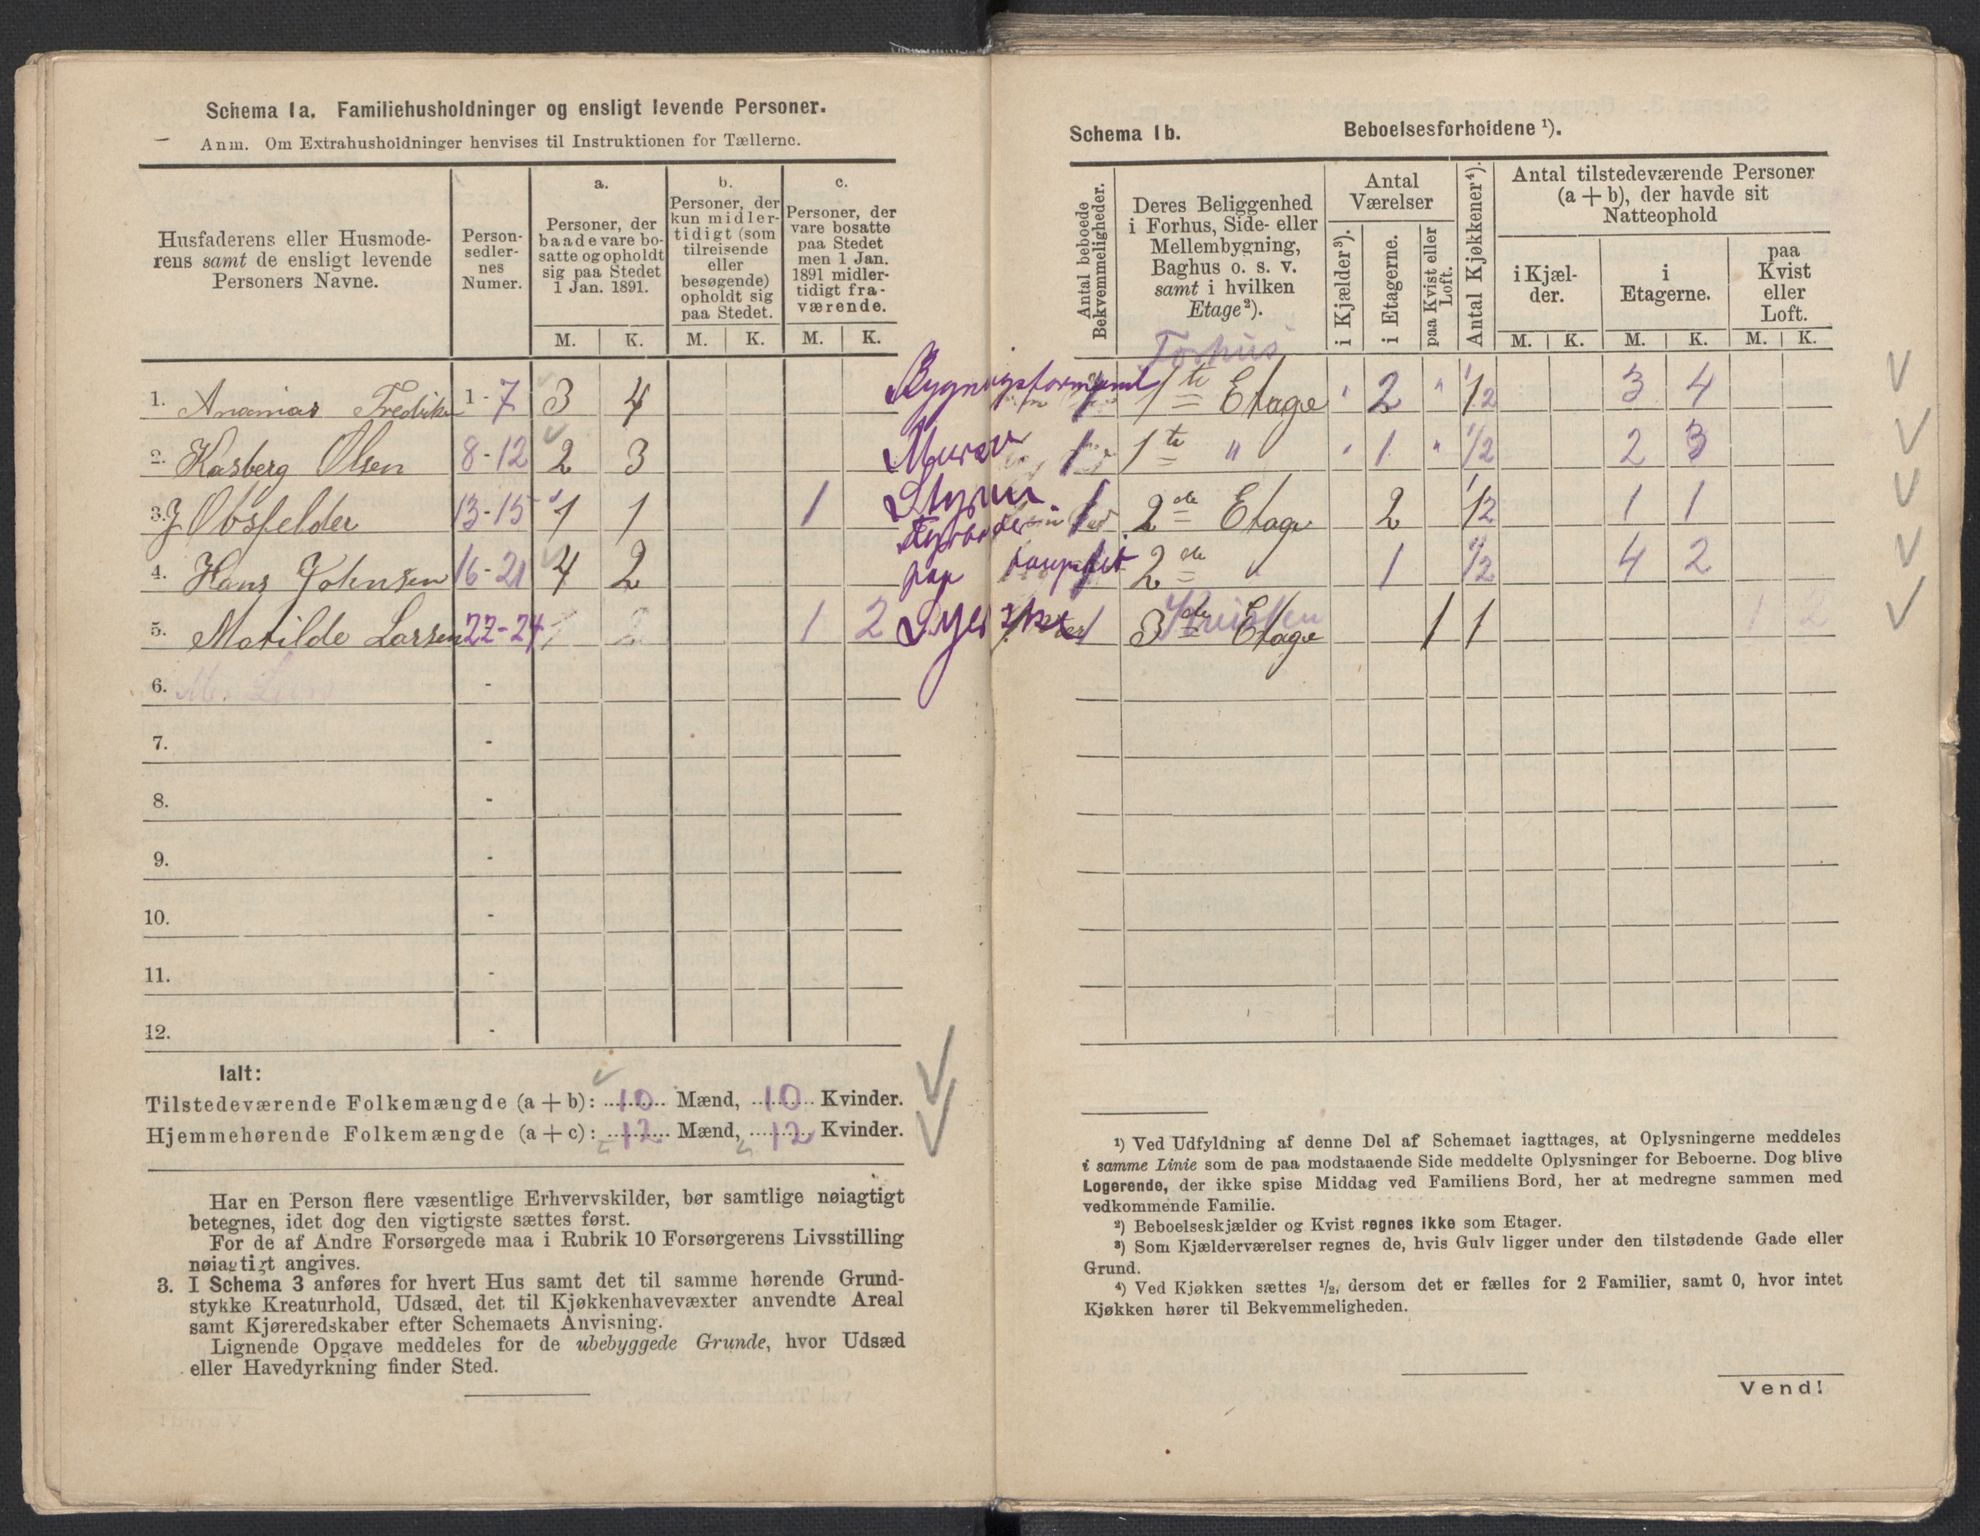 Schema 1a. Familiehusholdninger og ensligt levende Personer.
Anm. Om Extrahusholdninger henvises til Instruktionen for Tællerne.
Husfaderens eller Husmode-
rens samt de ensligt levende
Personers Navne.
Person-
sedler-
nes
Numer.
a.
Personer, der
baade vare bo-
satte og opholdt
sig paa Stedet
1 Jan. 1891.
b.
Personer, der
kun midler-
tidigt (som
tilreisende
eller
besøgende)
opholdt sig
paa Stedet.
c.
Personer, der
vare bosatte
paa Stedet
men 1 Jan.
1891 midler-
tidigt fra-
værende.
M. K. M. K. M. K.
1. Ananias Fredrik 1 - 7 3 4
2. Kasberg Olsen 8 - 12 2 3
3. J Obsfelder 13 - 15 1 1 1
4. Hans Johnsen 16 - 21 4 2
5. Matilde Larsen 22 - 24 1 2
6. -
7. -
8. -
9. -
10. -
11. -
12. -
Ialt:
Tilstedeværende Folkemængde (a + b): 10 Mænd, 10 Kvinder.
Hjemmehørende Folkemængde (a + c): 12 Mænd, 12 Kvinder.
Har en Person flere væsentlige Erhvervskilder, bør samtlige nøiagtigt
betegnes, idet dog den vigtigste sættes først.
For de af Andre Forsørgede maa i Rubrik 10 Forsørgerens Livsstilling
nøiagtigt angives.
3. I Schema 3 anføres for hvert Hus samt det til samme hørende Grund-
stykke Kreaturhold, Udsæd, det til Kjøkkenhavevæxter anvendte Areal
samt Kjøreredskaber efter Schemaets Anvisning.
Lignende Opgave meddeles for de ubebyggede Grunde, hvor Udsæd
eller Havedyrkning finder Sted.
Schema 1b. Beboelsesforholdene ¹).
Antal beboede
Bekvemmeligheder.
Deres Beliggenhed
i Forhus, Side- eller
Mellembygning,
Baghus o. s. v.
samt i hvilken
Etage²).
Antal
Værelser
i Kjælder³).
i Etagerne.
paa Kvist eller
Loft.
Antal Kjøkkener⁴).
Antal tilstedeværende Personer
(a + b), der havde sit
Natteophold
i Kjæl-
der.
i
Etagerne.
paa
Kvist
eller
Loft.
M. K. M. K. M. K.
Forhus
1 1te Etage " 2 " 1/2 3 4
Murer 1 1te " " 1 " 1/2 2 3
1 2de Etage 2 1/2 1 1
1 2de " 1 1/2 4 2
1 3de Etage 1 1 1 2
¹) Ved Udfyldning af denne Del af Schemaet iagttages, at Oplysningerne meddeles
i samme Linie som de paa modstaaende Side meddelte Oplysninger for Beboerne. Dog blive
Logerende, der ikke spise Middag ved Familiens Bord, her at medregne sammen med
vedkommende Familie.
²) Beboelseskjælder og Kvist regnes ikke som Etager.
³) Som Kjælderværelser regnes de, hvis Gulv ligger under den tilstødende Gade eller
Grund.
⁴) Ved Kjøkken sættes ½, dersom det er fælles for 2 Familier, samt 0, hvor intet
Kjøkken hører til Bekvemmeligheden.
Vend!